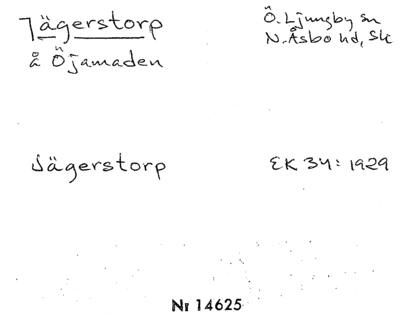 Jägerstorp
å Öjamaden
Ö. Ljungby sn
N. Åsbo hd, Sk
Jägerstorp
EK 34: 1929
Nr 14625